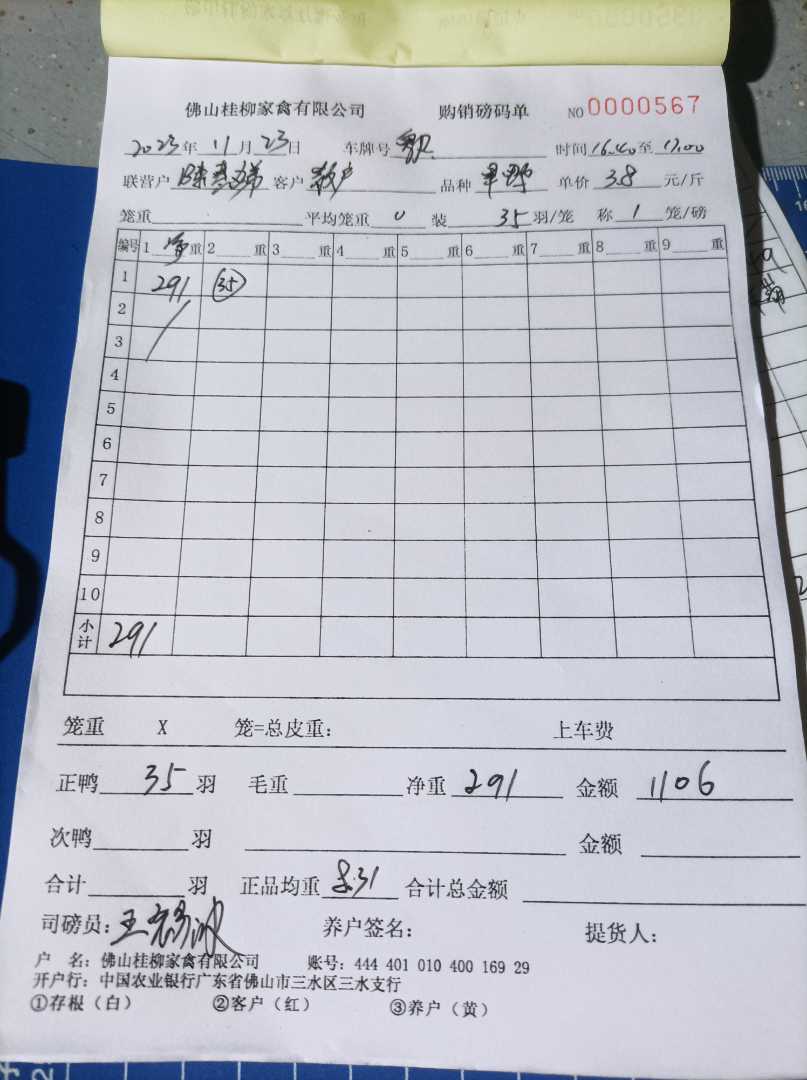 佛山桂柳家禽有限公司 购销磅码单 NO 0000567
2023年 11月 23日 车牌号 时间 16.40 至 17.00
联营户 客户 散户 品种 单价 3.8 元/斤
笼重 平均笼重 0 装 35 羽/笼 称 1 笼/磅
编号 1 净重 2 重 3 重 4 重 5 重 6 重 7 重 8 重 9 重
1 291 35
2
3
4
5
6
7
8
9
10
小计 291
笼重 X 笼=总皮重: 上车费
正鸭 35 羽 毛重 净重 291 金额 1106
次鸭 羽 金额
合计 羽 正品均重 8.31 合计总金额
司磅员: 养户签名: 提货人:
户 名: 佛山桂柳家禽有限公司 账号: 444 401 010 400 169 29
开户行: 中国农业银行广东省佛山市三水区三水支行
①存根(白) ②客户(红) ③养户(黄)